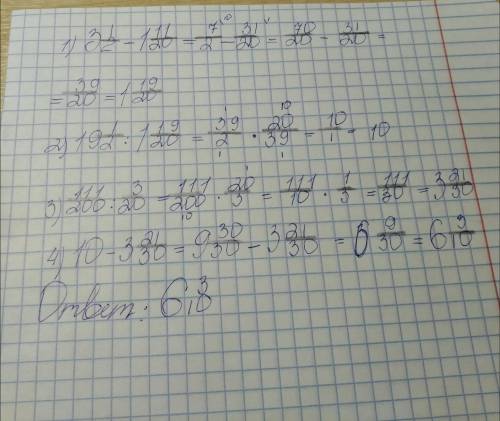 1) 3 1/2 - 1 11/20 = 7/2 ¹⁰ - 31/20 ¹ = 70/20 - 31/20 =
= 39/20 = 1 19/20
2) 19 1/2 : 1 19/20 = 39/2 · 20/39 = 10/1 = 10
3) 111/200 : 3/20 = 111/200 · 20/3 = 111/10 · 1/3 = 111/30 = 3 21/30
4) 10 - 3 21/30 = 9 30/30 - 3 21/30 = 6 9/30 = 6 3/10
Ответ: 6 3/10